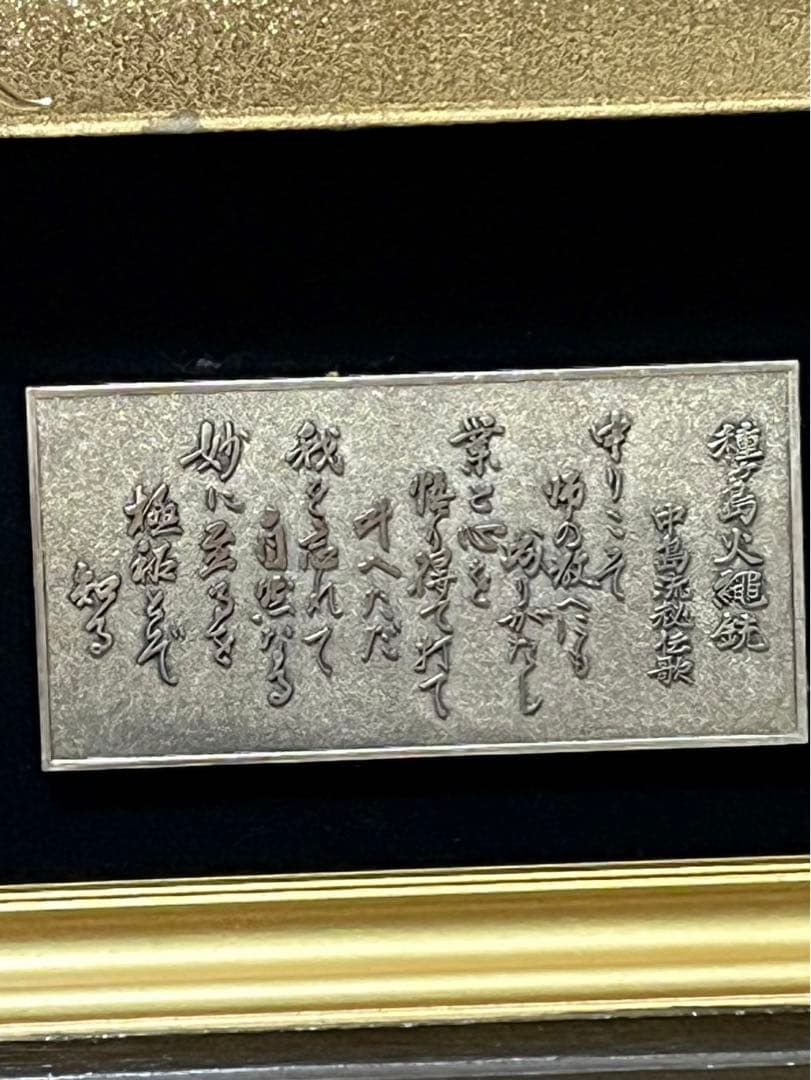 種ヶ島火縄銃
中島流秘伝歌
中りこそ
師の教へにも
がたし
業と心を
悟り得て打て
ただ
我を忘れて
自然なる
妙に至るを
極秘とぞ
知る